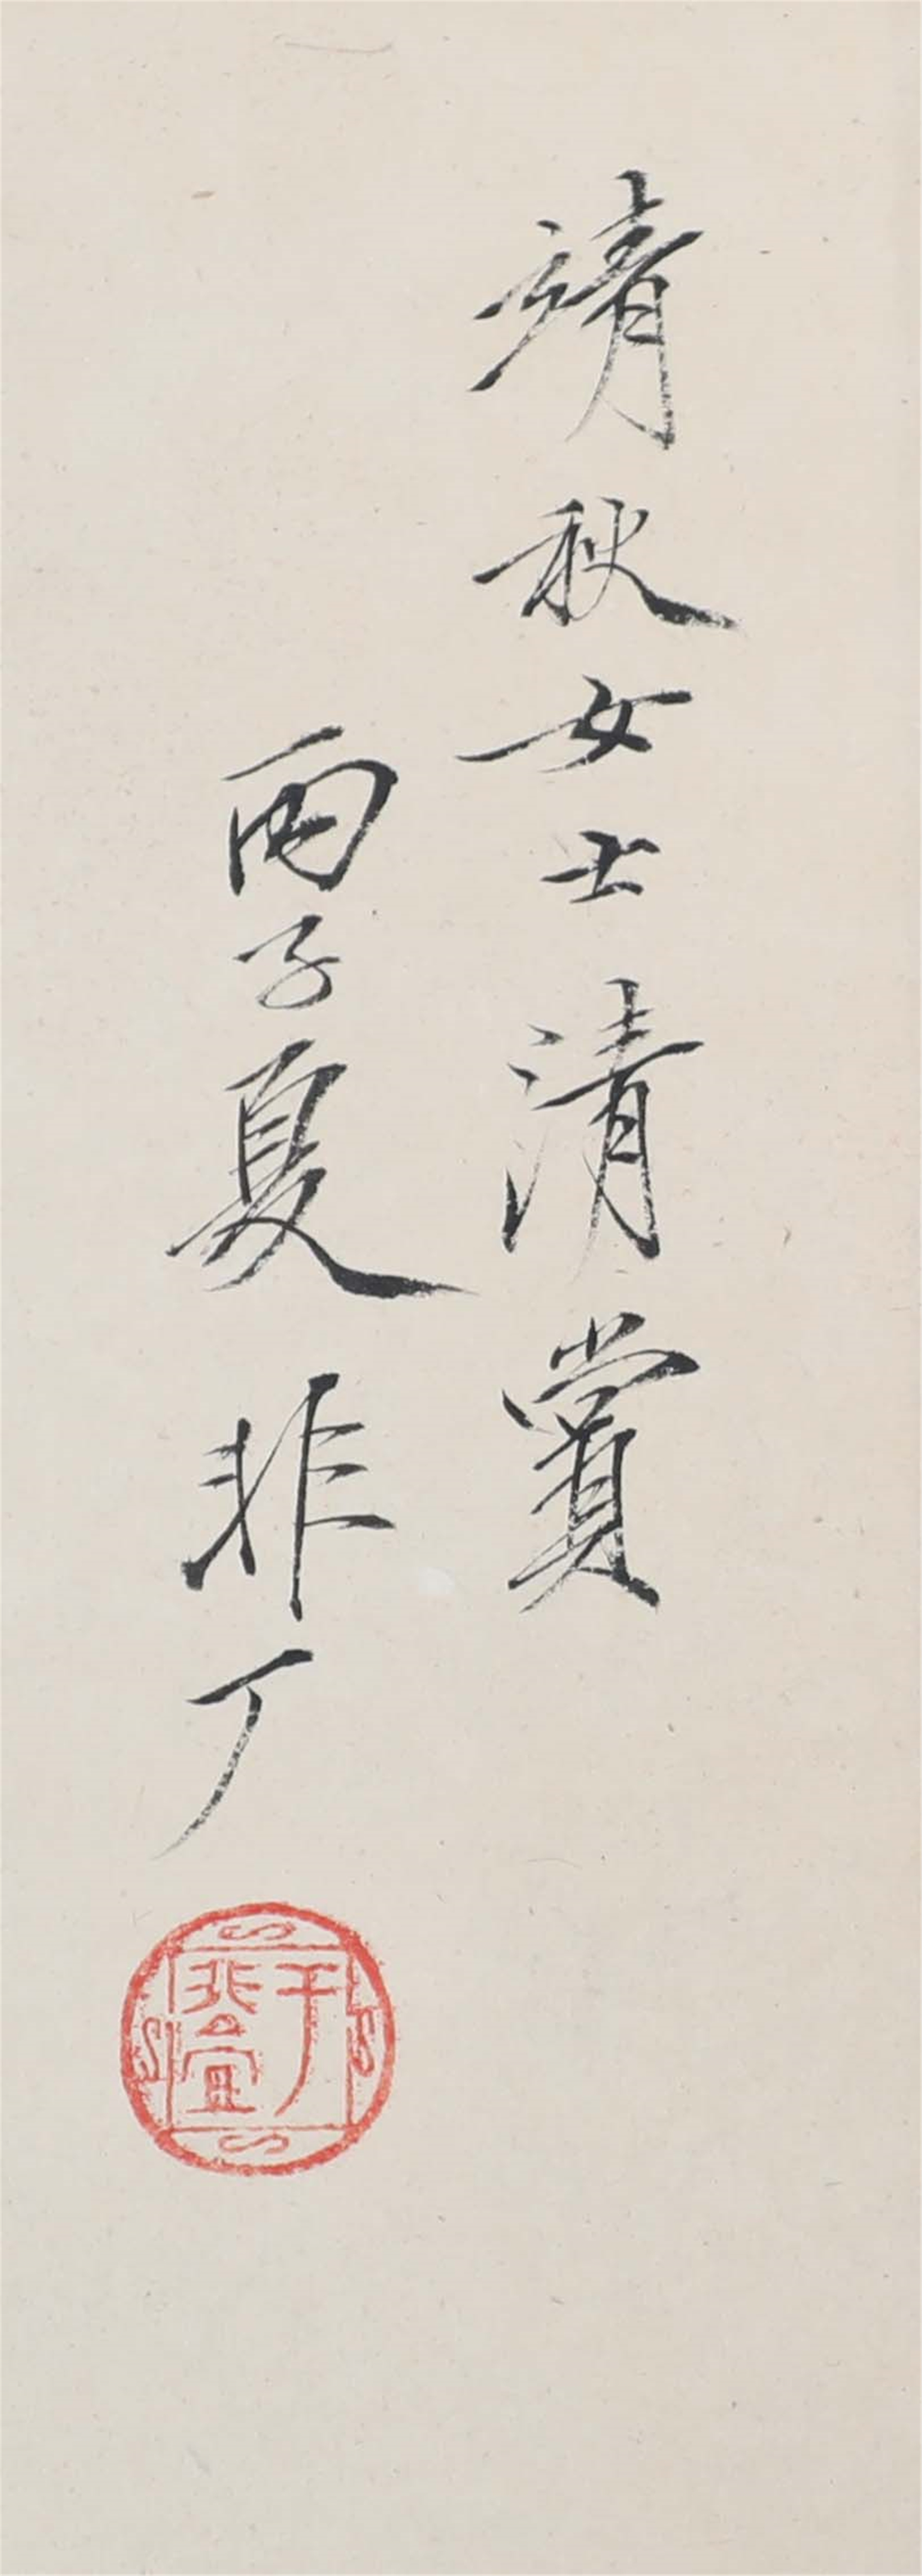 靖秋女士清賞
丙子夏 非厂
于非闇